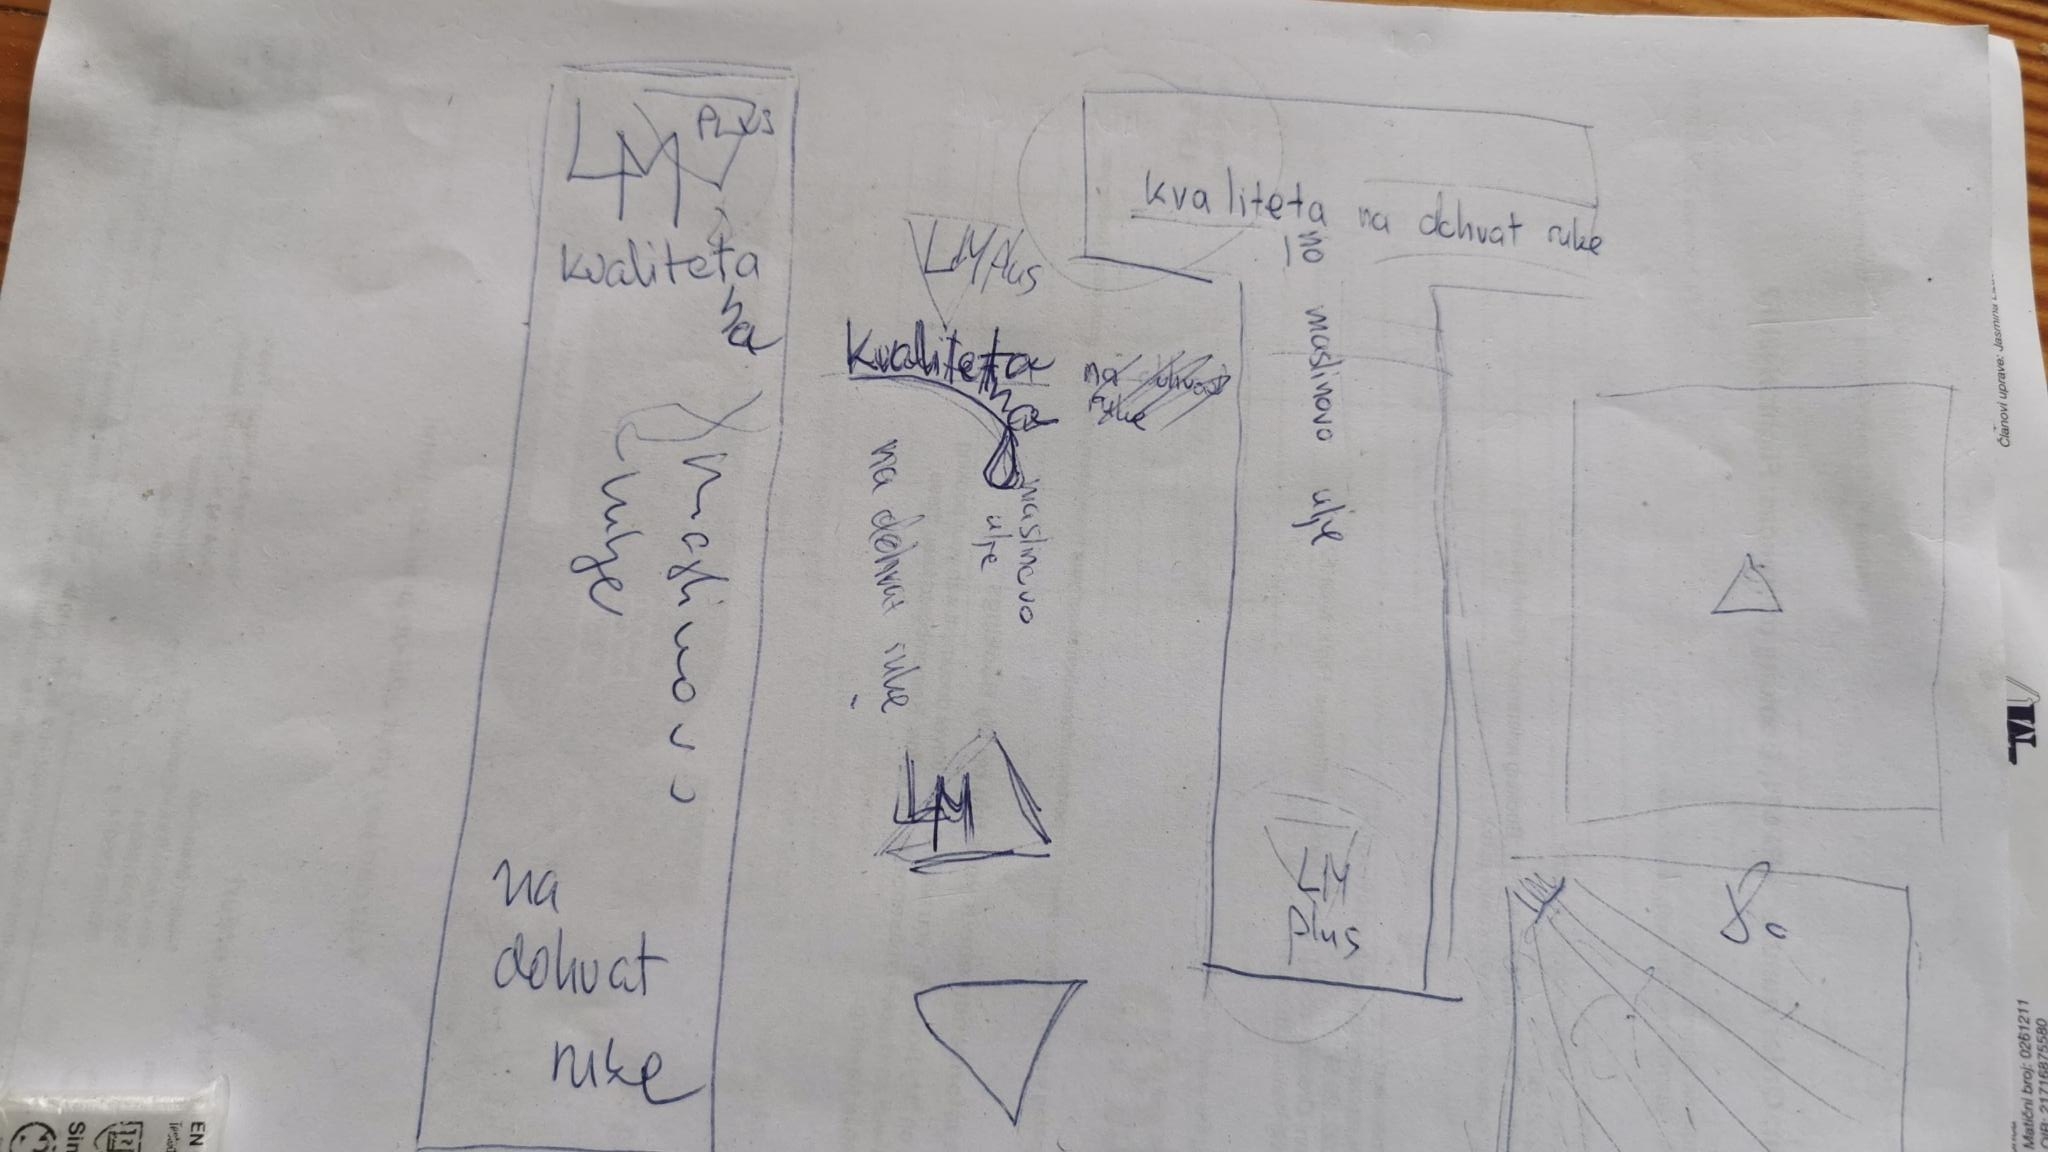 LM PLUS
kvaliteta
na
maslinovo
ulje
na
dohvat
ruke
LM Plus
kvaliteta
na
na dohvat
ruke
maslinovo
ulje
na dohvat ruke
LM
kvaliteta na dohvat ruke
no maslinovo ulje
LM
Plus
Matični broj: 0261211
OIB: 21716875580
EN